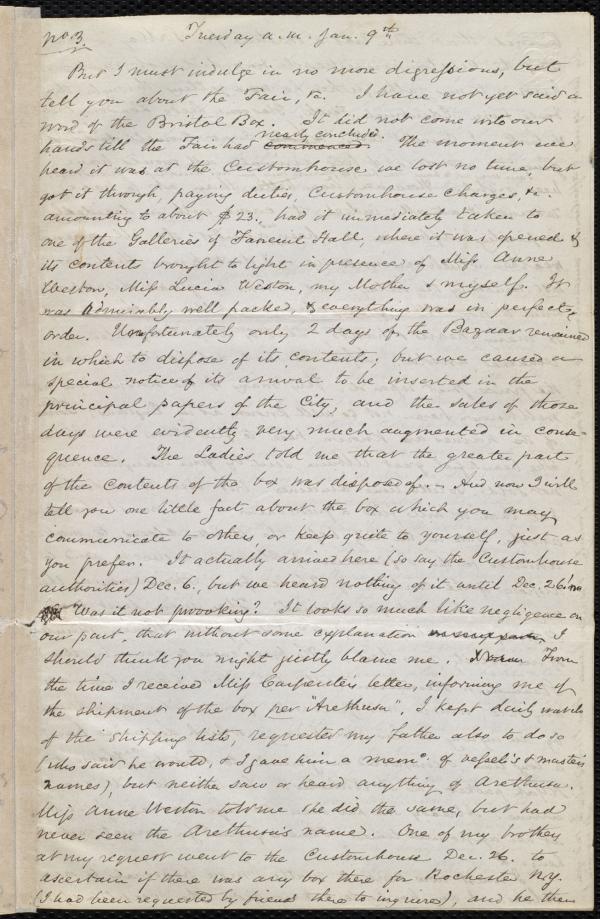 No 3. Tuesday a.m. Jan. 9th
But I must indulge in no more digressions, but
tell you about the Fair, &c. I have not yet said a
word of the Bristol Box. It did not come into our
hands till the Fair had commenced nearly concluded. The moment we
heard it was at the Customhouse we lost no time, but
got it through, paying duties, Customhouse charges, &c.
amounting to about $23, had it immediately taken to
one of the Galleries of Faneuil Hall, where it was opened &
its contents brought to light in presence of Miss Anne
Weston, Miss Lucia Weston, my Mother & myself. It
was admirably well packed, & everything was in perfect
order. Unfortunately only 2 days of the Bazaar remained
in which to dispose of its contents; but we caused a
special notice of its arrival to be inserted in the
principal papers of the City, and the sales of those
days were evidently very much augmented in conse-
quence. The Ladies told me that the greater part
of the contents of the box was disposed of. – And now I will
tell you one little fact about the box which you may
communicate to others, or keep quite to yourself, just as
you prefer. It actually arrived here (so say the Customhouse
authorities) Dec. 6, but we heard nothing of it until Dec. 26!
Was it not provoking? It looks so much like negligence on
our part, that without some explanation I
should think you might justly blame me. From
the time I received Miss Carpenter's letter, informing me of
the shipment of the box per "Arethusa", I kept daily watch
of the shipping lists, requested my father also to do so
(who said he would, & I gave him a memo. of vessel's & master's
names), but neither saw or heard anything of Arethusa.
Miss Anne Weston told me she did the same, but had
never seen the Arethusa's name. One of my brothers
at my request went to the Customhouse Dec. 26. to
ascertain if there was any box there for Rochester N.Y.
(I had been requested by friends there to inquire), and he then